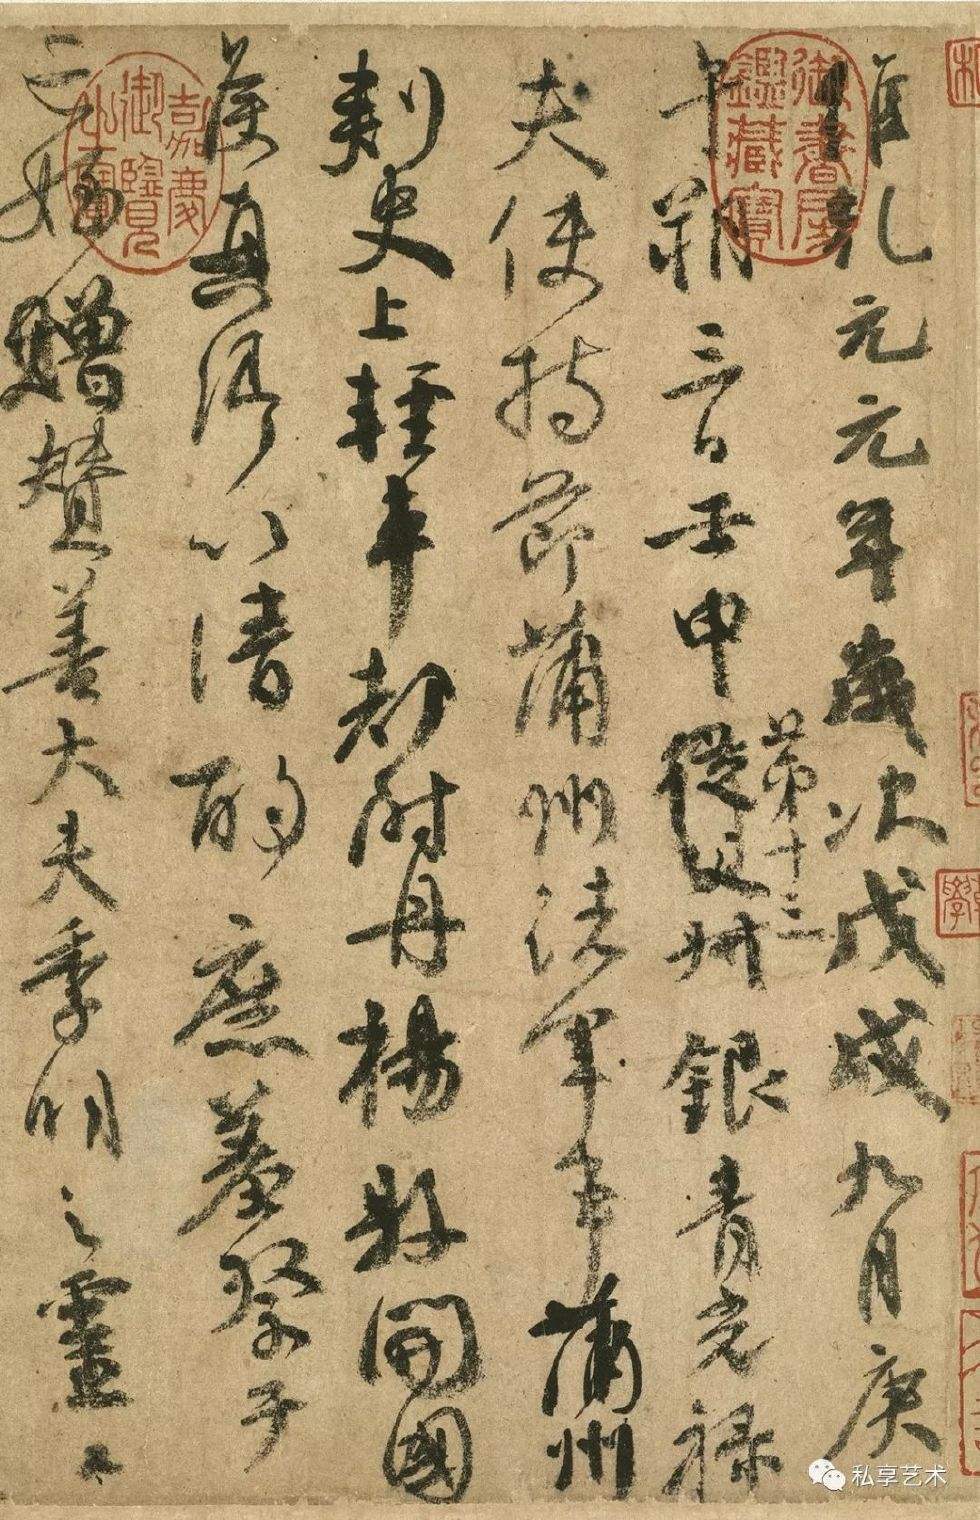 維乾元元年歲次戊戌九月庚
午朔三日壬申
第十三
從父
銀青光祿
夫使持節蒲州諸軍事蒲州
刺史上輕車都尉丹楊縣開國
侯真卿以清酌庶羞祭于
亡姪贈贊善大夫季明之靈
御書房鑑藏寶
嘉慶御覽之寶
私享艺术